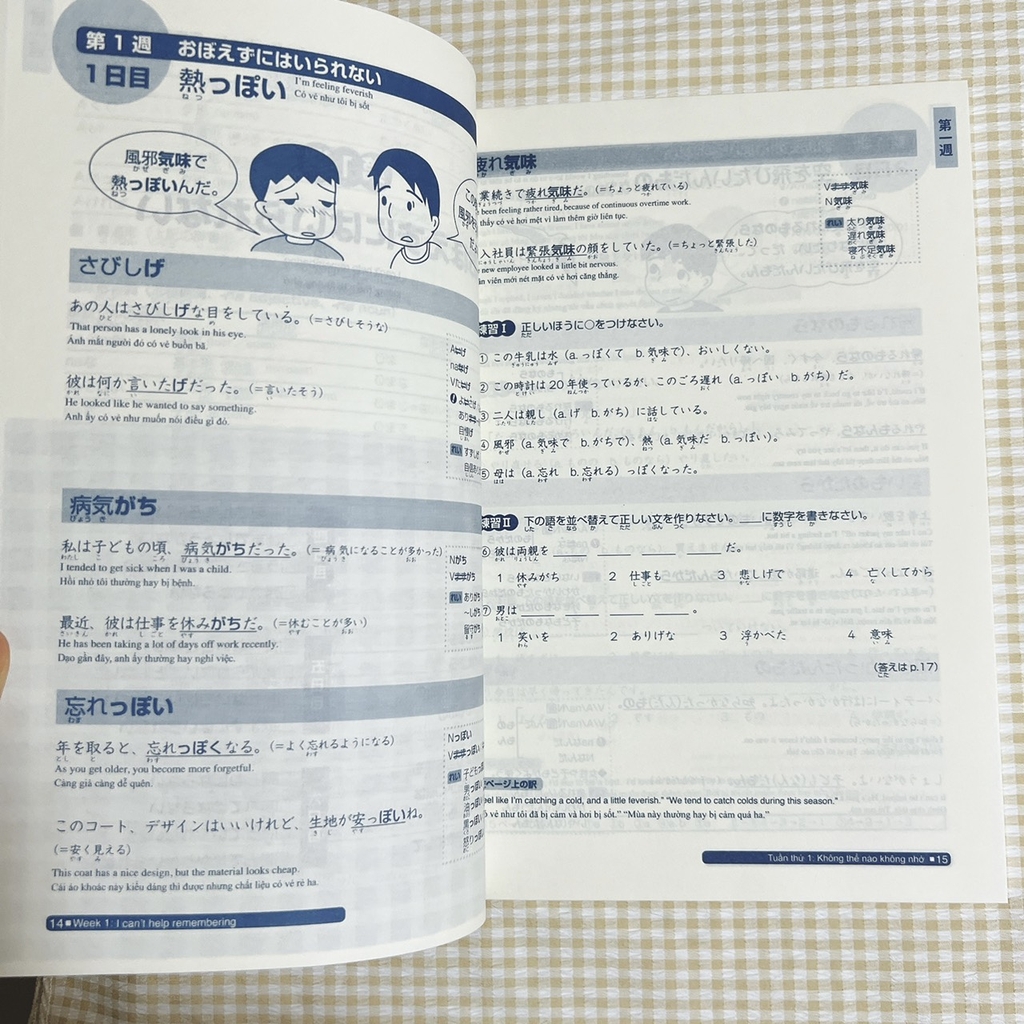 第1週 おぼえずにはいられない
1日目 熱っぽい
ねつ
I'm feeling feverish
Có vẻ như tôi bị sốt
風邪気味で
かぜ ぎみ
熱っぽいんだ。
ねつ
さびしげ
あの人はさびしげな目をしている。(=さびしそうな)
ひと め
That person has a lonely look in his eye.
Ánh mắt người đó có vẻ buồn bã.
彼は何か言いたげだった。(=言いたそう)
かれ なに い
He looked like he wanted to say something.
Anh ấy có vẻ như muốn nói điều gì đó.
病気がち
びょうき
私は子どもの頃、病気がちだった。(=病気になることが多かった)
わたし こ ころ びょうき おお
I tended to get sick when I was a child.
Hồi nhỏ tôi thường hay bị bệnh.
Nがち
最近、彼は仕事を休みがちだ。(=休むことが多い)
さいきん かれ しごと やす やす おお
He has been taking a lot of days off work recently.
Dạo gần đây, anh ấy thường hay nghỉ việc.
忘れっぽい
わす
年を取ると、忘れっぽくなる。(=よく忘れるようになる)
とし と わす わす
As you get older, you become more forgetful.
Càng già càng dễ quên.
Nっぽい
このコート、デザインはいいけれど、生地が安っぽいね。
きじ やす
(=安く見える)
やす み
This coat has a nice design, but the material looks cheap.
Cái áo khoác này kiểu dáng thì được nhưng chất liệu có vẻ rẻ há.
14 ■ Week 1: I can't help remembering
第一週
疲れ気味
業続きで疲れ気味だ。(=ちょっと疲れている)
been feeling rather tired, because of continuous overtime work.
thấy có vẻ hơi mệt vì làm thêm giờ liên tục.
入社員は緊張気味の顔をしていた。(=ちょっと緊張した)
new employee looked a little bit nervous.
ân viên mới nét mặt có vẻ hơi căng thẳng.
Vます気味
N気味
れい 太り気味
遅れ気味
寝不足気味
練習Ⅰ 正しいほうに○をつけなさい。
ただ
① この牛乳は水(a. っぽくて b. 気味で)、おいしくない。
ぎゅうにゅう みず ぎみ
② この時計は20年使っているが、このごろ遅れ(a. っぽい b. がち)だ。
とけい ねんつか おく
③ 二人は親し(a. げ b. がち)に話している。
ふたり した はな
④ 風邪(a. 気味で b. がちで)、熱(a. 気味だ b. っぽい)。
かぜ ぎみ ねつ ぎみ
⑤ 母は(a. 忘れ b. 忘れる)っぽくなった。
はは わす わす
練習Ⅱ 下の語を並べ替えて正しい文を作りなさい。___に数字を書きなさい。
した ご なら か ただ ぶん つく すうじ か
⑥ 彼は両親を ___ ___ ___ ___ だ。
かれ りょうしん
1 休みがち 2 仕事も 3 悲しげで 4 亡くしてから
やす しごと かな な
⑦ 男は ___ ___ ___ ___ 。
おとこ
1 笑いを 2 ありげな 3 浮かべた 4 意味
わら う いみ
(答えは p.17)
こた
ページ上の訳
eel like I'm catching a cold, and a little feverish." "We tend to catch colds during this season."
ó vẻ như tôi đã bị cảm và hơi bị sốt." "Mùa này thường hay bị cảm quá ha."
Tuần thứ 1: Không thể nào không nhớ ■ 15